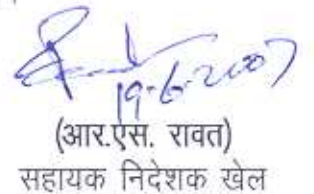 19-6-2007
(आर.एस. रावत)
सहायक निदेशक खेल